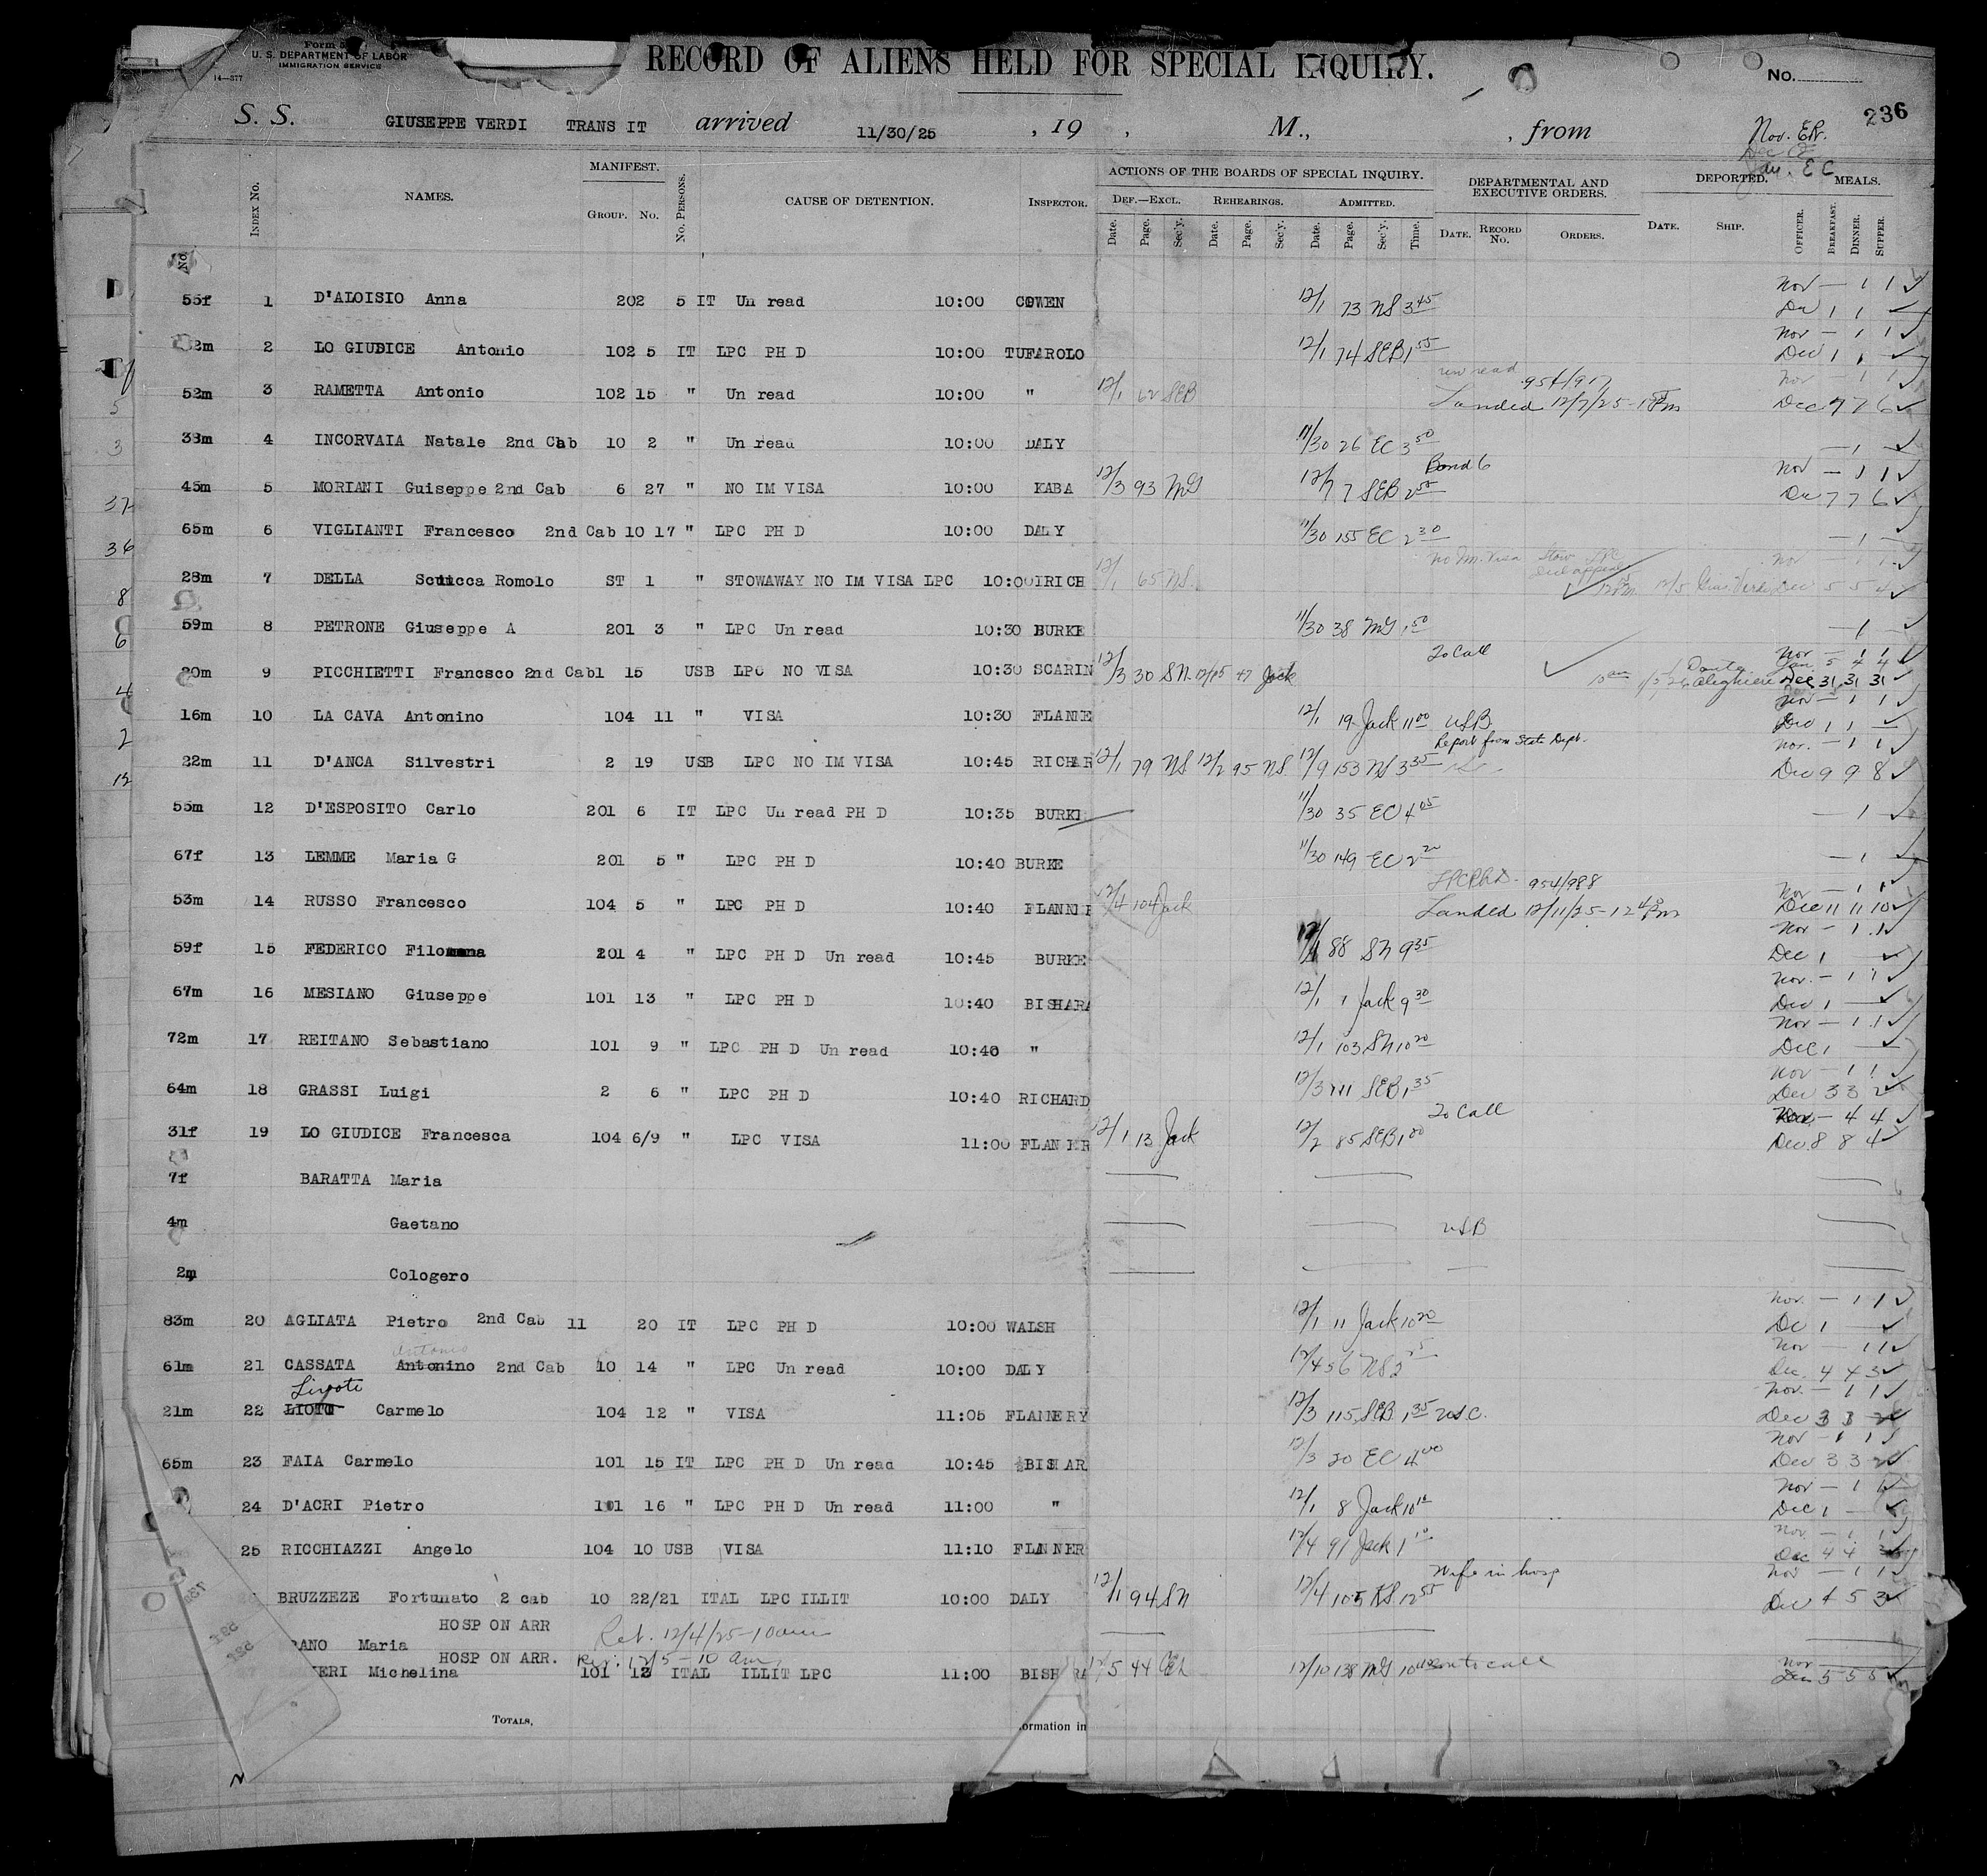 U. S. DEPARTMENT OF LABOR
IMMIGRATION SERVICE
14—577
RECORD OF ALIENS HELD FOR SPECIAL INQUIRY.
No.
236
S. S. GIUSEPPE VERDI TRANS IT arrived 11/30/25 , 19 , M., , from
Nov. ER.
Jan. E C
INDEX No. NAMES. MANIFEST. GROUP. No. No. PERSONS. CAUSE OF DETENTION. INSPECTOR. ACTIONS OF THE BOARDS OF SPECIAL INQUIRY. DEF.—EXCL. REHEARINGS. ADMITTED. DEPARTMENTAL AND EXECUTIVE ORDERS. DEPORTED. MEALS.
Date. Page. Sec'y. Date. Page. Sec'y. Date. Page. Sec'y. Time. DATE. RECORD No. ORDERS. DATE. SHIP. OFFICER. BREAKFAST. DINNER. SUPPER.
55f 1 D'ALOISIO Anna 202 5 IT Un read 10:00 COWEN 12/1 73 NS 3 45 Nov — 1 1
Dec 1 1 —
2 LO GIUDICE Antonio 102 5 IT LPC PH D 10:00 TUFAROLO 12/1 74 SEB 1 55 Nov — 1 1
Dec 1 1 —
un read 954/917 Nov — 1 1
52m 3 RAMETTA Antonio 102 15 " Un read 10:00 " 12/1 62 SEB Landed 12/7/25 Dec 7 7 6
38m 4 INCORVAIA Natale 2nd Cab 10 2 " Un read 10:00 DALY 11/30 26 EC 3 50 — 1 —
Bond 6 Nov — 1 1
45m 5 MORIANI Guiseppe 2nd Cab 6 27 " NO IM VISA 10:00 KABA 12/3 93 MG 12/7 7 SEB 2 55 Dec 7 7 6
65m 6 VIGLIANTI Francesco 2nd Cab 10 17 " LPC PH D 10:00 DALY 11/30 155 EC 2 30 — 1 —
No Im. Visa Stow LPC Nov — 1 1
28m 7 DELLA Romolo ST 1 " STOWAWAY NO IM VISA LPC 10:00 IRICH 12/1 65 NS 12/5 Dec 5 5 4
59m 8 PETRONE Giuseppe A 201 3 " LPC Un read 10:30 BURKE 11/30 38 MG 1 50 — 1 —
To Call Nov — 1 1
Dante Jan. 5 4 4
20m 9 PICCHIETTI Francsco 2nd Cab 1 15 USB LPC NO VISA 10:30 SCARIN 12/3 30 SN 47 Jack Alighieri Dec 31 31 31
Nov — 1 1
16m 10 LA CAVA Antonino 104 11 " VISA 10:30 FLANNE 12/1 19 Jack 11 00 USB Dec 1 1 —
Report from State Dept. Nov. — 1 1
22m 11 D'ANCA Silvestri 2 19 USB LPC NO IM VISA 10:45 RICHAR 12/1 79 NS 12/2 95 NS 12/9 153 NS 3 35 Dec 9 9 8
55m 12 D'ESPOSITO Carlo 201 6 IT LPC Un read PH D 10:35 BURKE 11/30 35 EC 4 05 — 1 —
67f 13 LEMME Maria G 201 5 " LPC PH D 10:40 BURKE 11/30 149 EC 2 20 — 1 —
LPC Ph D. 954/988 Nov — 1 1
53m 14 RUSSO Francesco 104 5 " LPC PH D 10:40 FLANNER 12/4 104 Jack Landed 12/11/25 Dec 11 11 10
Nov — 1 1
59f 15 FEDERICO Filomena 201 4 " LPC PH D Un read 10:45 BURKE 12/1 88 SN 9 35 Dec 1 —
Nov. — 1 1
67m 16 MESIANO Giuseppe 101 13 " LPC PH D 10:40 BISHARA 12/1 1 Jack 9 30 Dec 1 —
Nov — 1 1
72m 17 REITANO Sebastiano 101 9 " LPC PH D Un read 10:40 " 12/1 103 SN 10 20 Dec 1 —
Nov — 1 1
64m 18 GRASSI Luigi 2 6 " LPC PH D 10:40 RICHARD 12/3 111 SEB 1 35 Dec 3 3 2
To Call Nov — 4 4
31f 19 LO GIUDICE Francesca 104 6/9 " LPC VISA 11:00 FLANNER 12/1 13 Jack 12/2 85 SEB 1 00 Dec. 8 8 4
7f BARATTA Maria
4m Gaetano USB
2m Cologero
Nov. — 1 1
83m 20 AGLIATA Pietro 2nd Cab 11 20 IT LPC PH D 10:00 WALSH 12/1 11 Jack 10 20 Dec 1 —
Antonio Nov — 1 1
61m 21 CASSATA Antonino 2nd Cab 10 14 " LPC Un read 10:00 DALY 12/4 56 NS Dec. 4 4 3
Nov. — 1 1
21m 22 LIOTO Carmelo 104 12 " VISA 11:05 FLANNERY 12/3 115 SEB 1 35 USC. Dec 3 3 2
Nov — 1 1
65m 23 FAIA Carmelo 101 15 IT LPC PH D Un read 10:45 BISHAR 12/3 20 EC 4 00 Dec 3 3 2
Nov — 1 1
24 D'ACRI Pietro 101 16 " LPC PH D Un read 11:00 " 12/1 8 Jack 10 10 Dec 1 —
Nov — 1 1
25 RICCHIAZZI Angelo 104 10 USB VISA 11:10 FLANNER 12/4 91 Jack 1 10 Dec 4 4
Wife in hosp Nov — 1 1
BRUZZEZE Fortunato 2 cab 10 22/21 ITAL LPC ILLIT 10:00 DALY 12/1 94 SN 12/4 105 NS 12 55 Dec 4 5 3
HOSP ON ARR Ret. 12/4/25-10am
RANO Maria
HOSP ON ARR. Ret. 12/5-10 am
ERI Michelina 101 12 ITAL ILLIT LPC 11:00 BISHARA 12/5 44 12/10 138 MG Nov
Dec 5 5 5
TOTALS,
ormation in